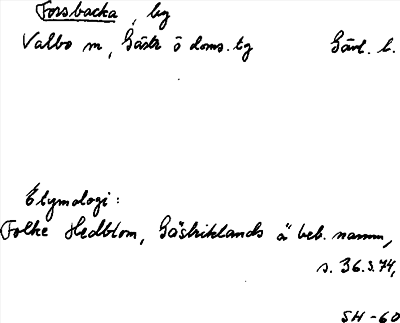 Forsbacka, by
Valbo sn, Gästr ö doms. tg Gävl. l.
Etymologi:
Folke Hedblom, Gästriklands ä beb. namn,
s. 36. s. 74,
SH-60